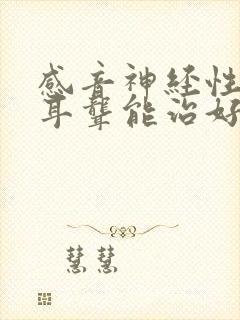 感音神经性
耳聋能治好
慧慧